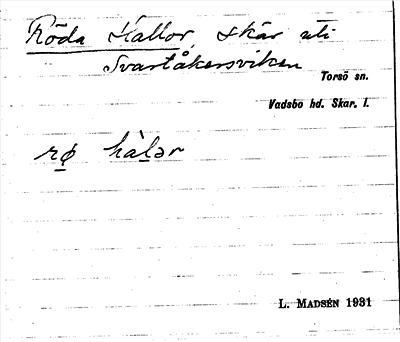 Röda Hallor, skär uti
Svartåkersviken
Torsö sn.
Vadsbo hd. Skar. l.
rø hàlər
L. MADSÉN 1931